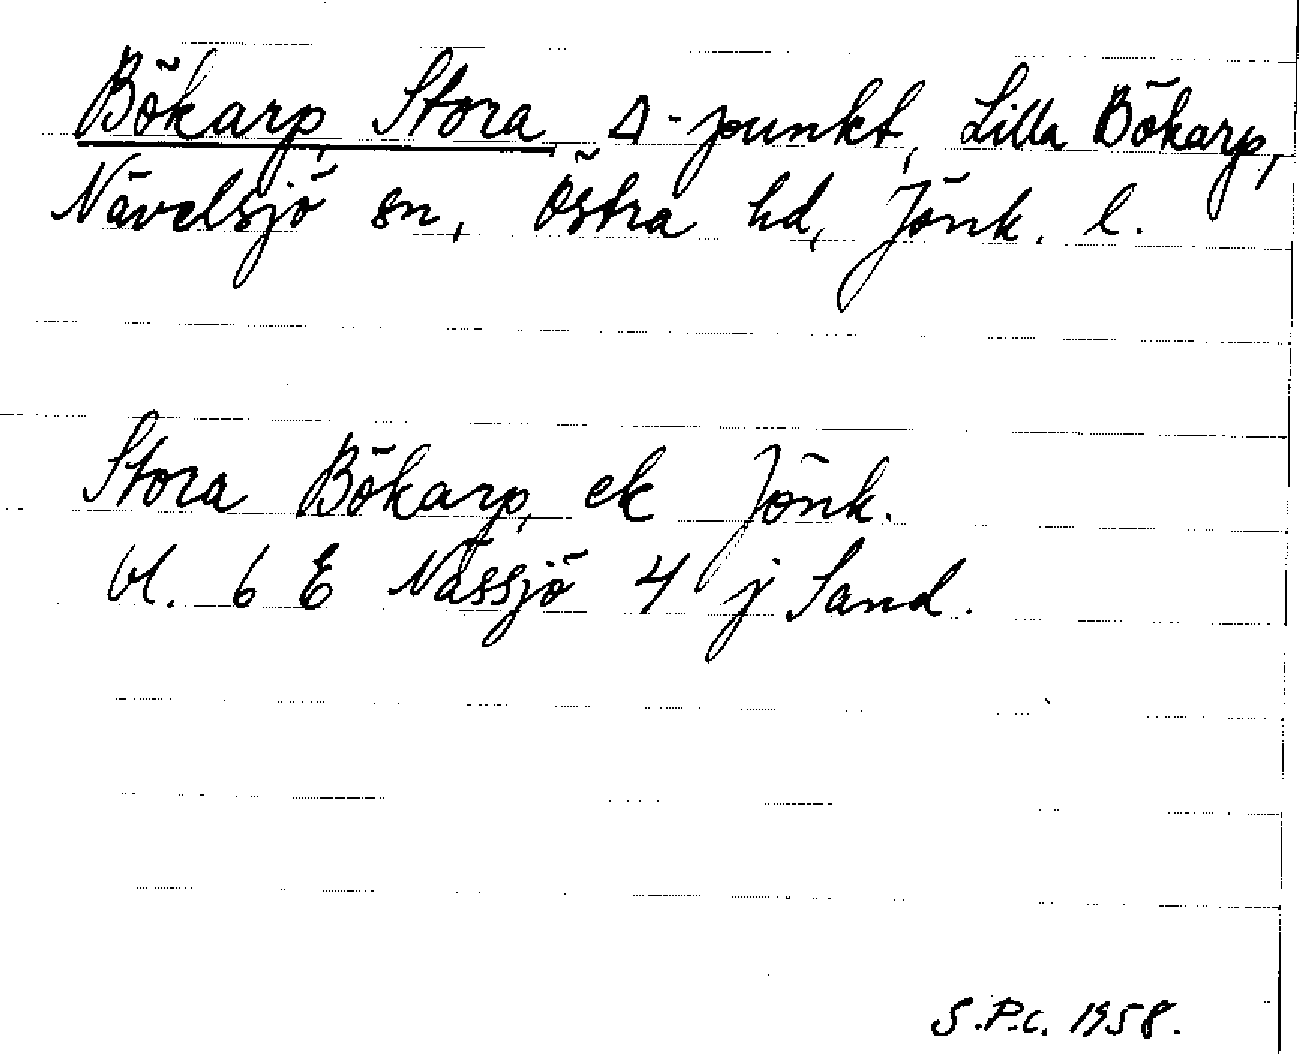 Bökarp, Stora Δ-punkt, Lilla Bökarp,
Nävelsjö sn, Östra hd, Jönk. l.
Stora Bökarp, ek Jönk.
bl. 6 E Nässjö 4 j Sand.
S.P.C. 1958.